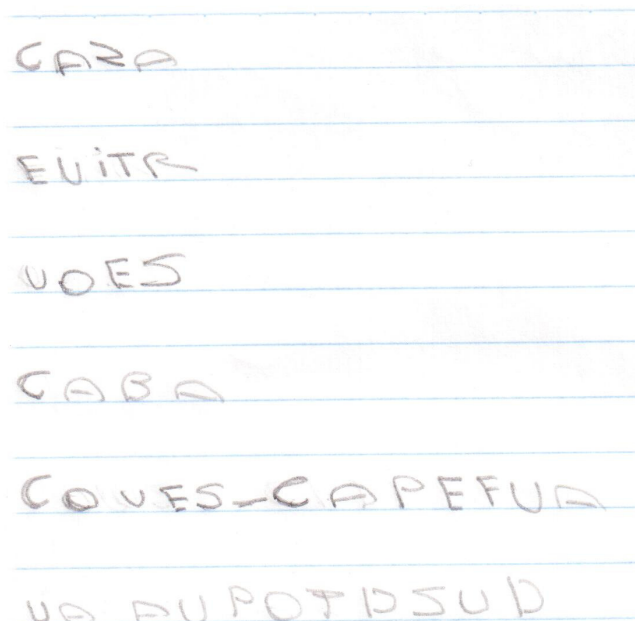 CAZA
EUiTR
UOES
CABA
COUES-CAPEFUA
UA AUPOTDSUD